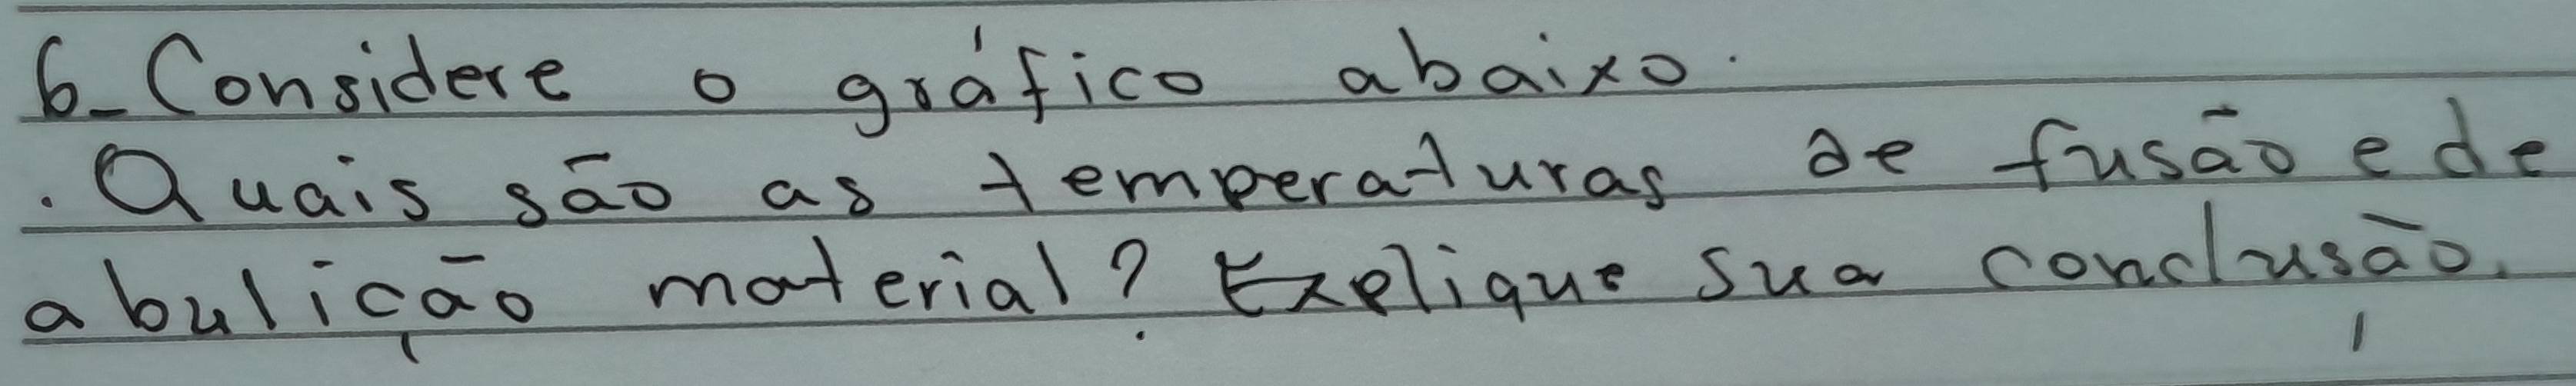 6- Considere o gráfico abaixo.
. Quais são as temperaturas de fusão e de
abulição material? Explique sua conclusão.